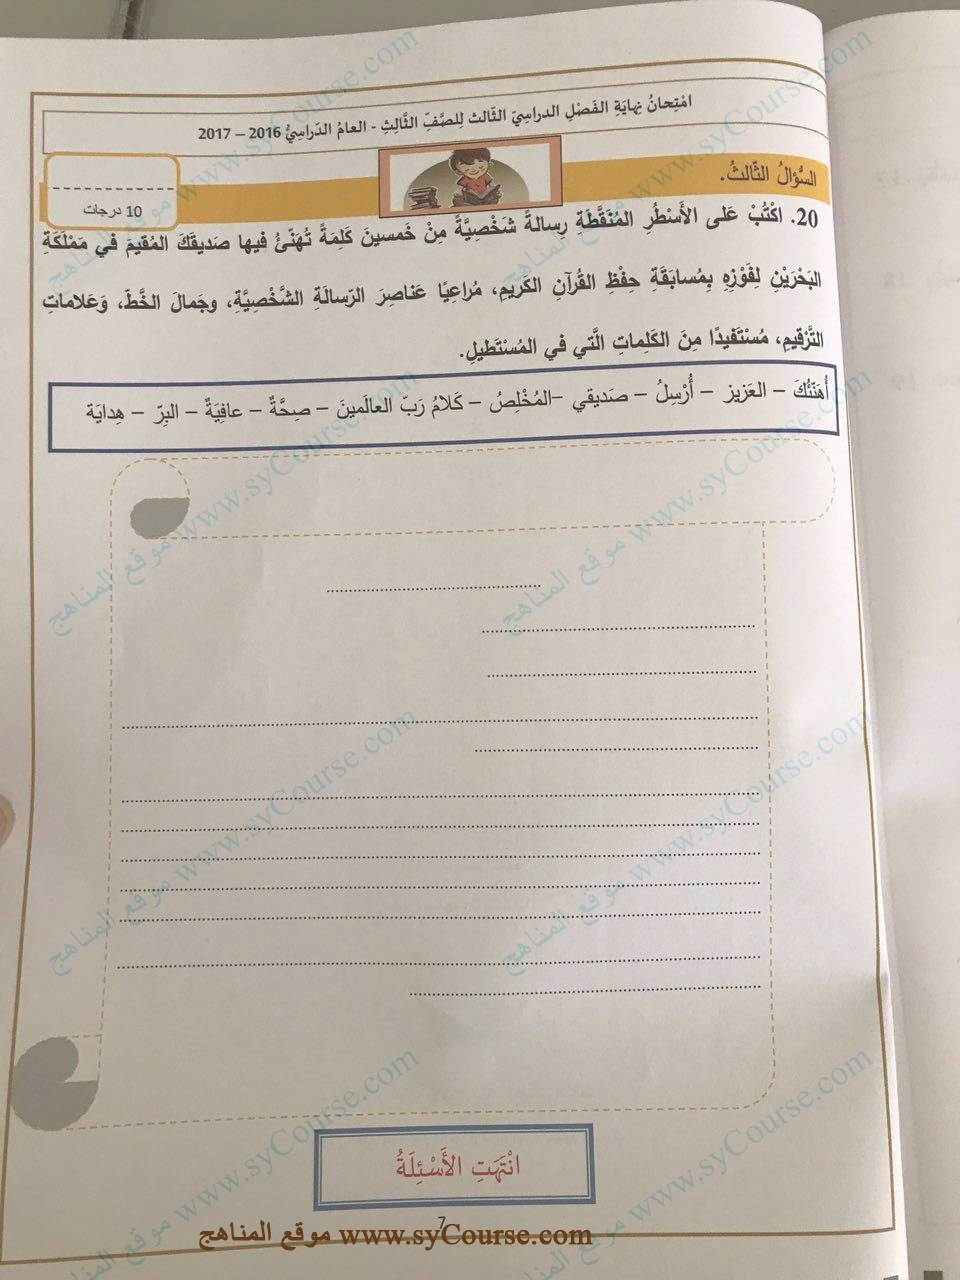 امْتِحانُ نِهايَةِ الفَصْلِ الدراسِيّ الثّالث لِلصَّفِّ الثَّالِثِ - العامُ الدّراسِيُّ 2016 – 2017
السُّؤالُ الثّالثُ.
10 درجات
20. اكْتُبْ عَلى الأَسْطُرِ المُنَقَّطَةِ رِسالةً شَخْصِيَّةً مِنْ خَمسينَ كَلِمَةً تُهَنّئُ فيها صَديقَكَ المُقيمَ في مَمْلَكَةِ
البَحْرَيْنِ لِفَوْزِهِ بِمُسابَقَةِ حِفْظِ القُرآنِ الكَريمِ، مُراعِيًا عَناصِرَ الرّسالَةِ الشَّخْصِيَّةِ، وجَمالَ الخَطّ، وَعَلاماتِ
التَّرْقيمِ، مُسْتَفيدًا مِنَ الكَلِماتِ الَّتي في المُسْتَطيلِ.
أُهَنّئُكَ – العَزيز – أُرْسِلُ – صَديقي –المُخْلِصُ – كَلامُ رَبّ العالَمينَ – صِحَّةٌ – عافِيَةٌ – البِرّ – هِدايَة
انْتَهَتِ الأَسْئِلَةُ
7
موقع المناهج www.syCourse.com